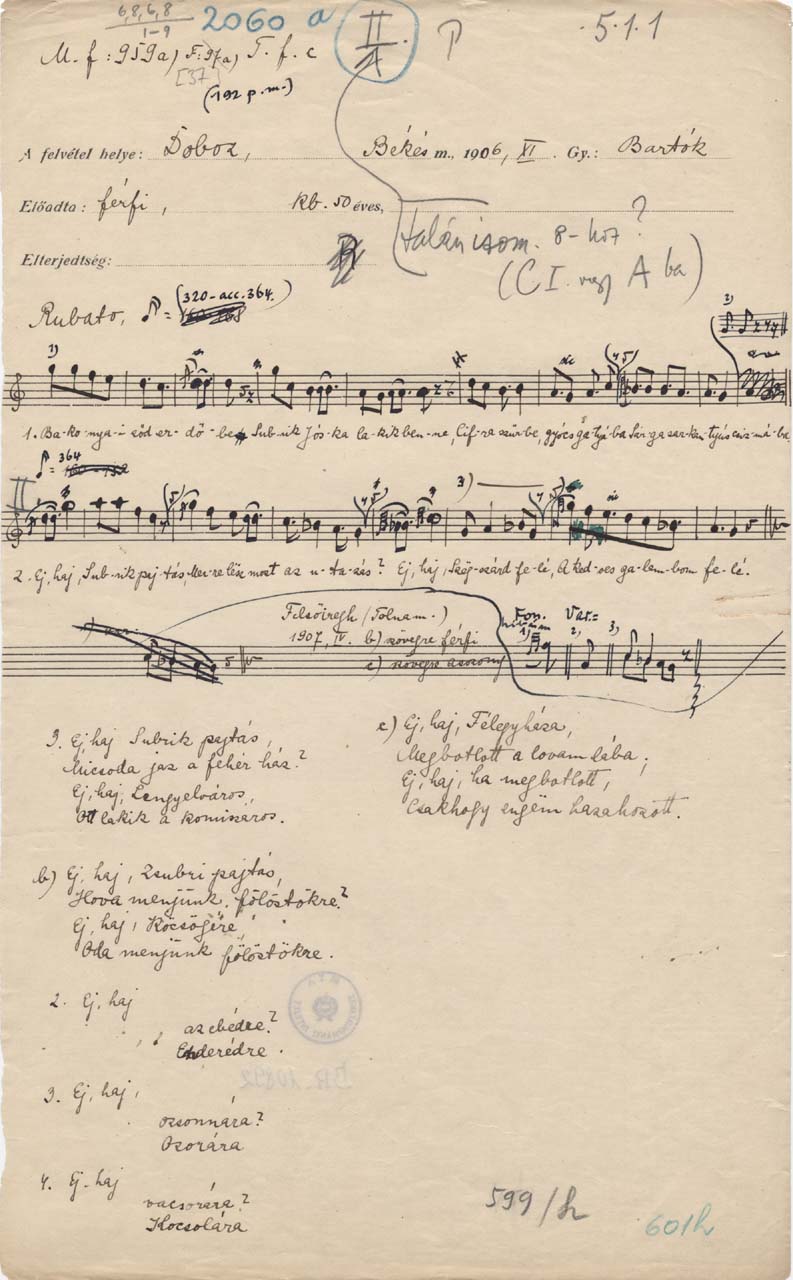 6,8,6,8
1-9
2060 a
II
A
P
5.1.1
M. f: 959a) F: 97a) T. f. c
[37]
(192 p.m.)
A felvétel helye: Doboz, Békés m., 1906, XI. Gy.: Bartók
Előadta: férfi, kb. 50 éves,
Elterjedtség:
talán isom. 8-hoz?
(C I. vagy A ba)
Rubato, ♪ = (320-acc. 364.)
1)
2)
1. Ba-ko-nya-i ződ er-dő-be Sub-rik Jós-ka la-kik ben-ne, Cif-ra szűr-be, gyócs ga-tyá-ba Sár-ga sar-kan-tyús csiz-má-ba.
♪ = 364
II
3)
2. Ej, haj, Sub-rik paj-tás, Mer-re lësz most az u-ta-zás? Ej, haj, Szëg-szárd fe-lé, A ked-ves ga-lam-bom fe-lé.
Felsőiregh (Tolna m.)
1907, IV. b) szövegre férfi
c) szövegre asszony
Fon.
Var.=
1) 2) 3)
3. Ej, haj Subrik pajtás,
Micsoda jaz a fehér ház?
Ej, haj, Lengyelváros,
Ott lakik a komiszáros.
c) Ej, haj, Félegyháza,
Megbotlott a lovam lába;
Ej, haj, ha megbotlott,
Csakhogy engëm hazahozott.
b) Ej, haj, Zsubri pajtás,
Hova menjünk fölöstökre?
Ej, haj, Köcsögére,
Oda menjünk fölöstökre.
2. Ej, haj
az ebédre?
Enderédre.
3. Ej, haj,
ozsonnára?
Ozorára
4. Ej-haj
vacsorára?
Kocsolára
BR 10892
599/h
601h